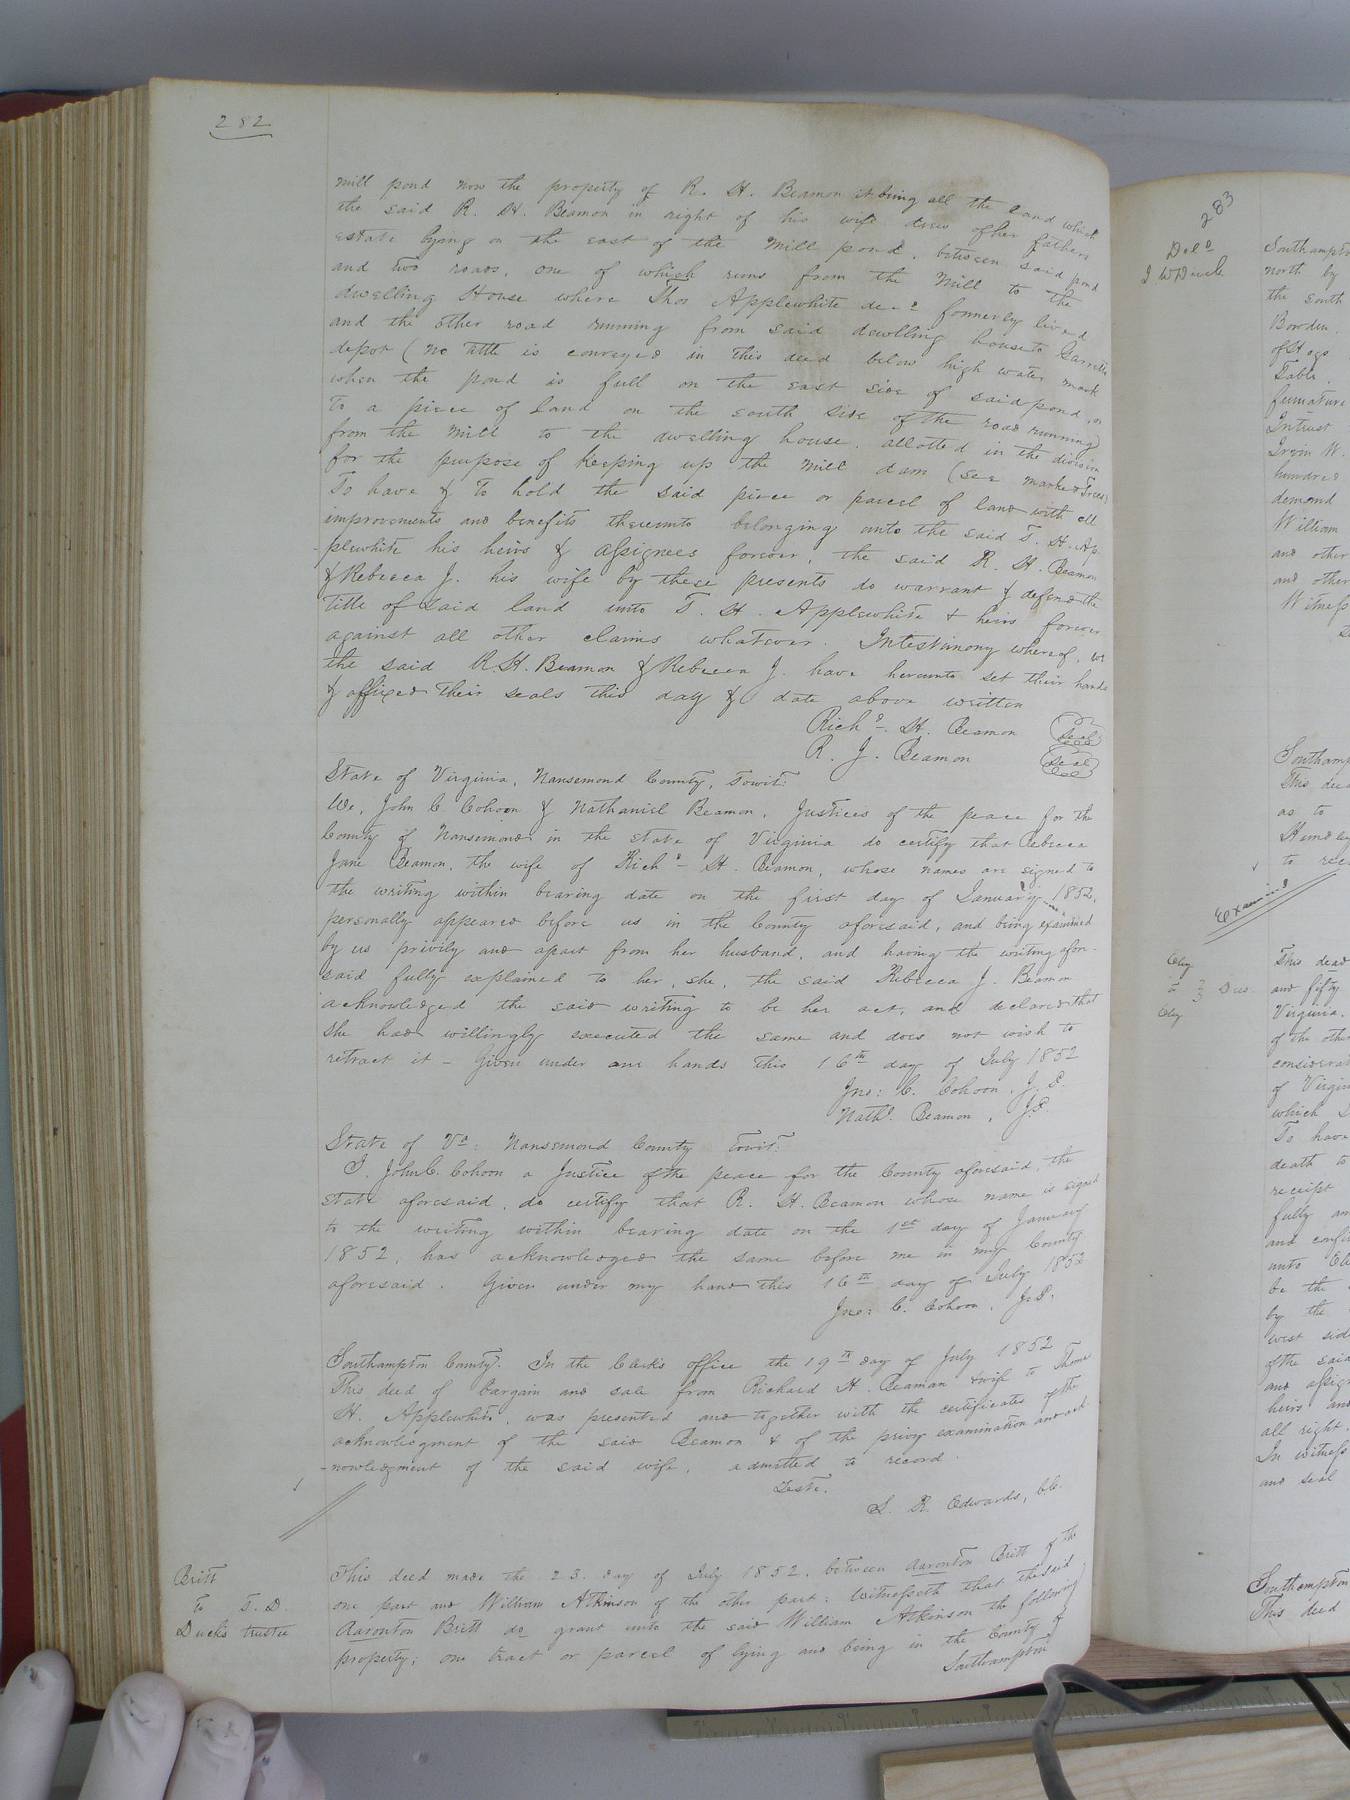 282
mill pond now the property of R. H. Beamon it being all the land which
the said R. H. Beamon in right of his wife drew of her fathers
estate lying on the east of the mill pond, between said pond
and two roads, one of which runs from the mill to the
dwelling House where Thos Applewhite decd formerly lived
and the other road running from said dwelling house to Garretts
depot (no title is conveyed in this deed below high water mark
when the pond is full on the east side of said pond, or
to a piece of land on the south side of the road running
from the mill to the dwelling house, allotted in the division
for the purpose of keeping up the mill dam (see marked trees)
To have & to hold the said piece or parcel of land with all
improvements and benefits thereunto belonging unto the said T. H. Ap-
-plewhite his heirs & assignees forever, the said R. H. Beamon
& Rebecca J. his wife by these presents do warrant & defend the
title of said land unto T. H. Applewhite & heirs forever
against all other claims whatever. In testimony whereof, we
the said R. H. Beamon & Rebecca J. have hereunto set their hands
& affixed their seals this day & date above written
Richd. H. Beamon Seal
R. J. Beamon Seal
State of Virginia, Nansemond County, towit:
We, John C Cohoon & Nathaniel Beamon, Justices of the peace for the
County of Nansemond in the State of Virginia do certify that Rebecca
Jane Beamon, the wife of Richd. H. Beamon, whose names are signed to
the writing within bearing date on the first day of January 1852,
personally appeared before us in the County aforesaid, and being examined
by us privily and apart from her husband, and having the writing afore-
said fully explained to her, she, the said Rebecca J. Beamon
acknowledged the said writing to be her act, and declared that
she had willingly executed the same and does not wish to
retract it – Given under our hands this 16th day of July 1852
Jno: C. Cohoon, J. P.
Nathl. Beamon, J.P.
State of Va: Nansemond County towit:
I, John C. Cohoon a Justice of the peace for the County aforesaid, the
State aforesaid, do certify that R. H. Beamon whose name is signed
to the writing within bearing date on the 1st day of January
1852, has acknowledged the same before me in my County
aforesaid. Given under my hand this 16th day of July 1852
Jno: C. Cohoon, J.P.
Southampton County: In the Clerk's office the 19th day of July 1852
This deed of bargain and sale from Richard H. Beaman & wife to Thomas
H. Applewhite, was presented and together with the certificates of the
acknowledgment of the said Beamon & of the privy examination and ack-
-nowledgment of the said wife, admitted to record.
Teste.
L. R. Edwards, C.C.
Britt
to T. D.
Duck's trustee
This deed made the 23. day of July 1852, between Aaronton Britt of the
one part and William Atkinson of the other part: Witnesseth that the said
Aaronton Britt do grant unto the said William Atkinson the following
property; one tract or parcel of lying and being in the County of
Southampton
283
Deld
J W Duck
Southampton
north by
the south
Bowden.
of Hogs
Table.
furnature
Intrust
Irvin W.
hundred
demand
William
and other
and other
Witness
Southamp
This deed
as to
to rec
Examined
to
Deed
This deed
and fifty
Virginia.
of the other
considerat
of Virgin
which
To have
death to
receipt
fully an
and conf
unto
be the
by the
west side
of the said
and assign
heirs and
all right
In witness
and seal
Southampton
This deed